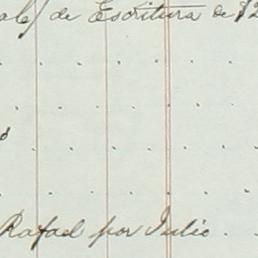 de Escritura de $2
Rafael por Julio